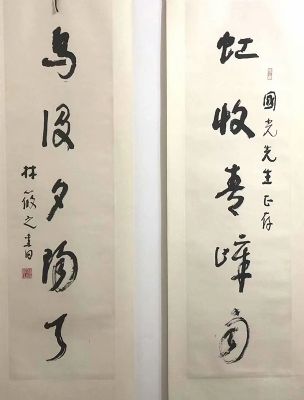 國光先生正存
虹收青嶂雨
鳥没夕陽天
林筱之書